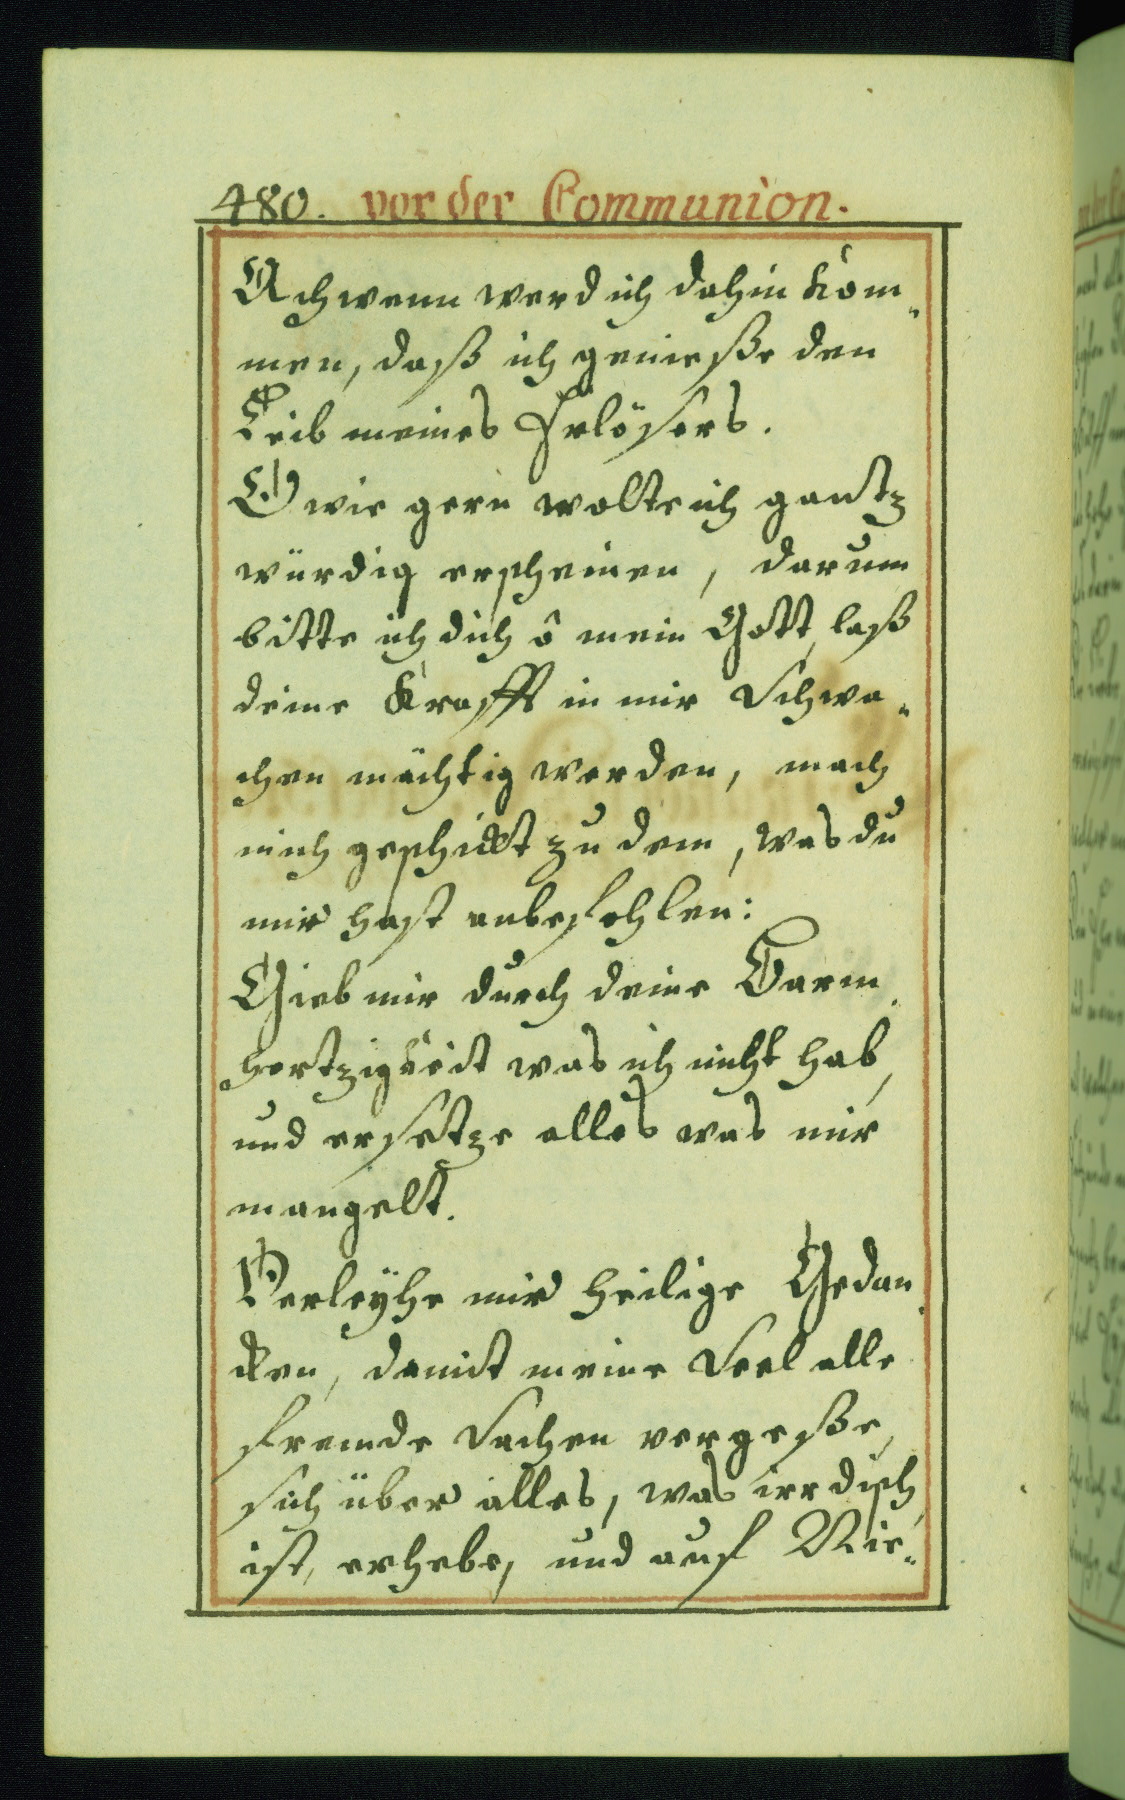 480. vor der Communion.
Ach wenn werd ich dahin kom-
men, daß ich genieße den
Leib meines Erlösers.
O wie gern wolte ich gantz
würdig erscheinen, darum
bitte ich dich ô mein Gott, laß
deine Krafft in mir Schwa-
chen mächtig werden, mach
mich geschickt zu dem, was du
mir hast anbefohlen:
Gieb mir durch deine Barm-
hertzigkeit was ich nicht hab,
und ersetze alles was mir
mangelt.
Verleyhe mir heilige Gedan-
cken, damit meine Seel alle
fremde Sachen vergeße,
sich über alles, was irrdisch
ist, erhebe, und auf Nie-